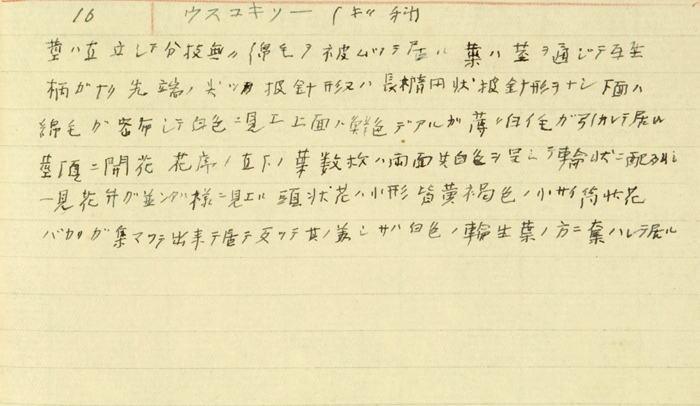 16 ウスユキソー (キク科)
莖ハ直立シテ分枝無ク綿毛ヲ被ムツテ居ル 葉ハ莖ヲ通ジテ互生
柄ガナク先端ノ尖ツタ披針形又ハ長楕円状披針形ヲナシ下面ハ
綿毛ガ密布シテ白色ニ見エ上面ハ鮮色デアルガ薄ク白毛ガ引カレテ居ル
莖頂ニ開花 花序ノ直下ノ葉数枚ハ両面共白色ヲ呈シテ輪状ニ配列シ
一見花弁ガ並ンダ様ニ見エル 頭状花ハ小形皆黄褐色ノ小サイ筒状花
バカリガ集マツテ出来テ居テ反ツテ其ノ美シサハ白色ノ輪生葉ノ方ニ奪ハレテ居ル